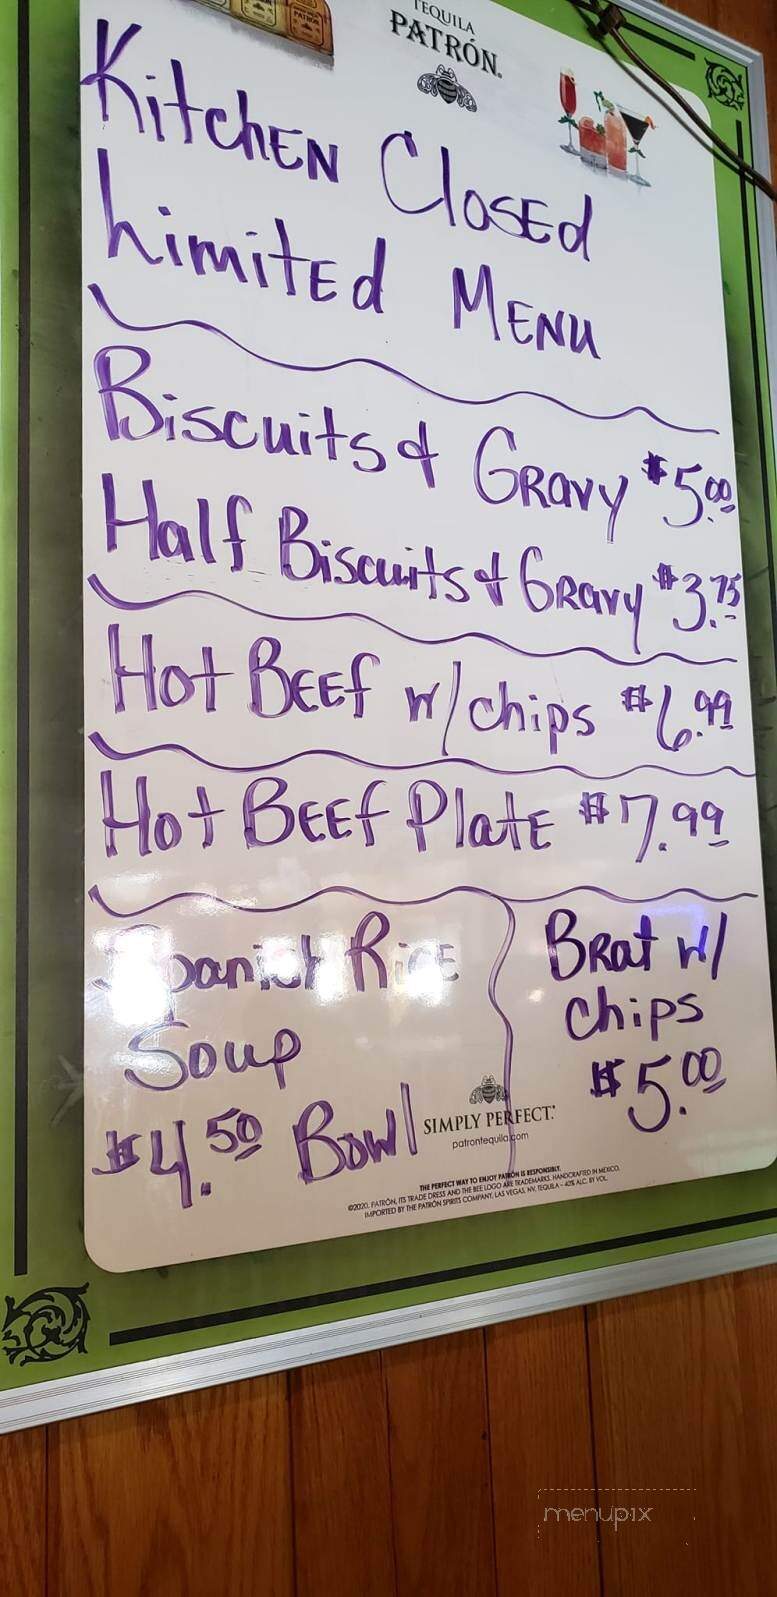 TEQUILA
PATRÓN.
Kitchen Closed
Limited Menu
Biscuits & Gravy $5.00
Half Biscuits & Gravy $3.75
Hot Beef w/chips $6.99
Hot Beef Plate $7.99
Spanish Rice
Soup
$4.50 Bowl
Brat w/
chips
$5.00
SIMPLY PERFECT.
patrontequila.com
THE PERFECT WAY TO ENJOY PATRÓN IS RESPONSIBLY.
©2020. PATRÓN, ITS TRADE DRESS AND THE BEE LOGO ARE TRADEMARKS. HANDCRAFTED IN MEXICO.
IMPORTED BY THE PATRÓN SPIRITS COMPANY, LAS VEGAS, NV. TEQUILA – 40% ALC. BY VOL.
menupix